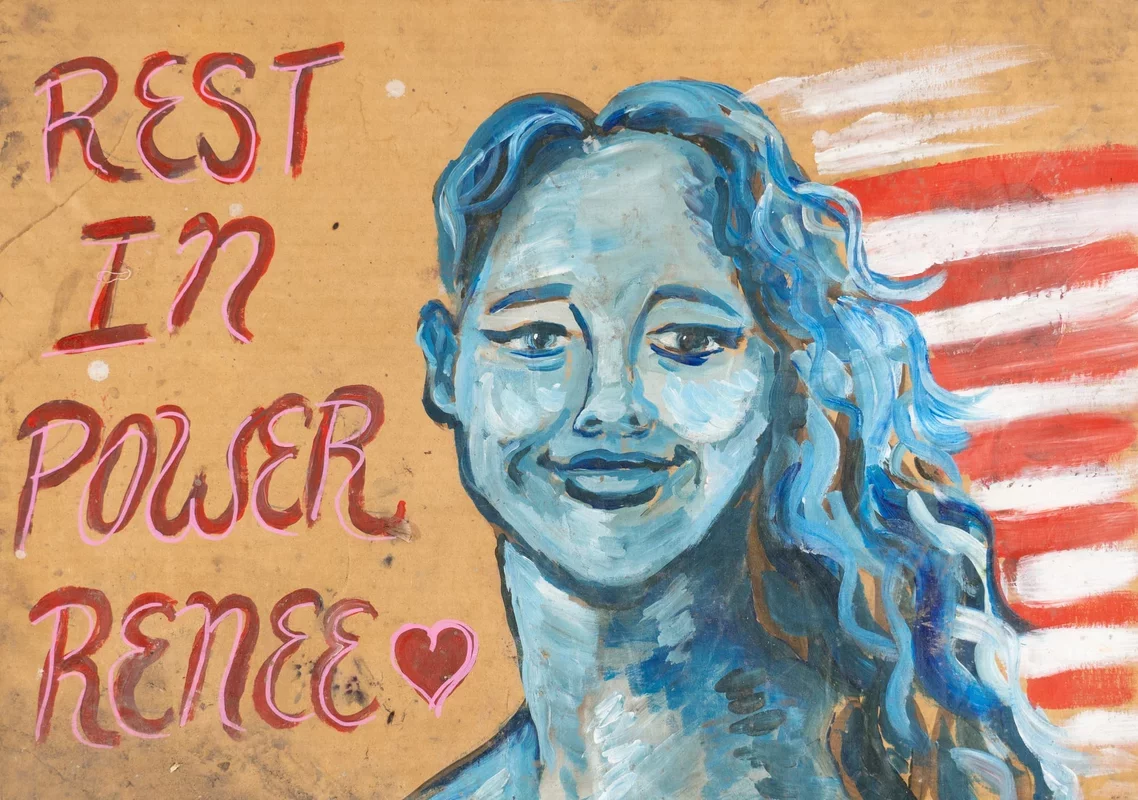 REST
IN
POWER
RENEE ♥